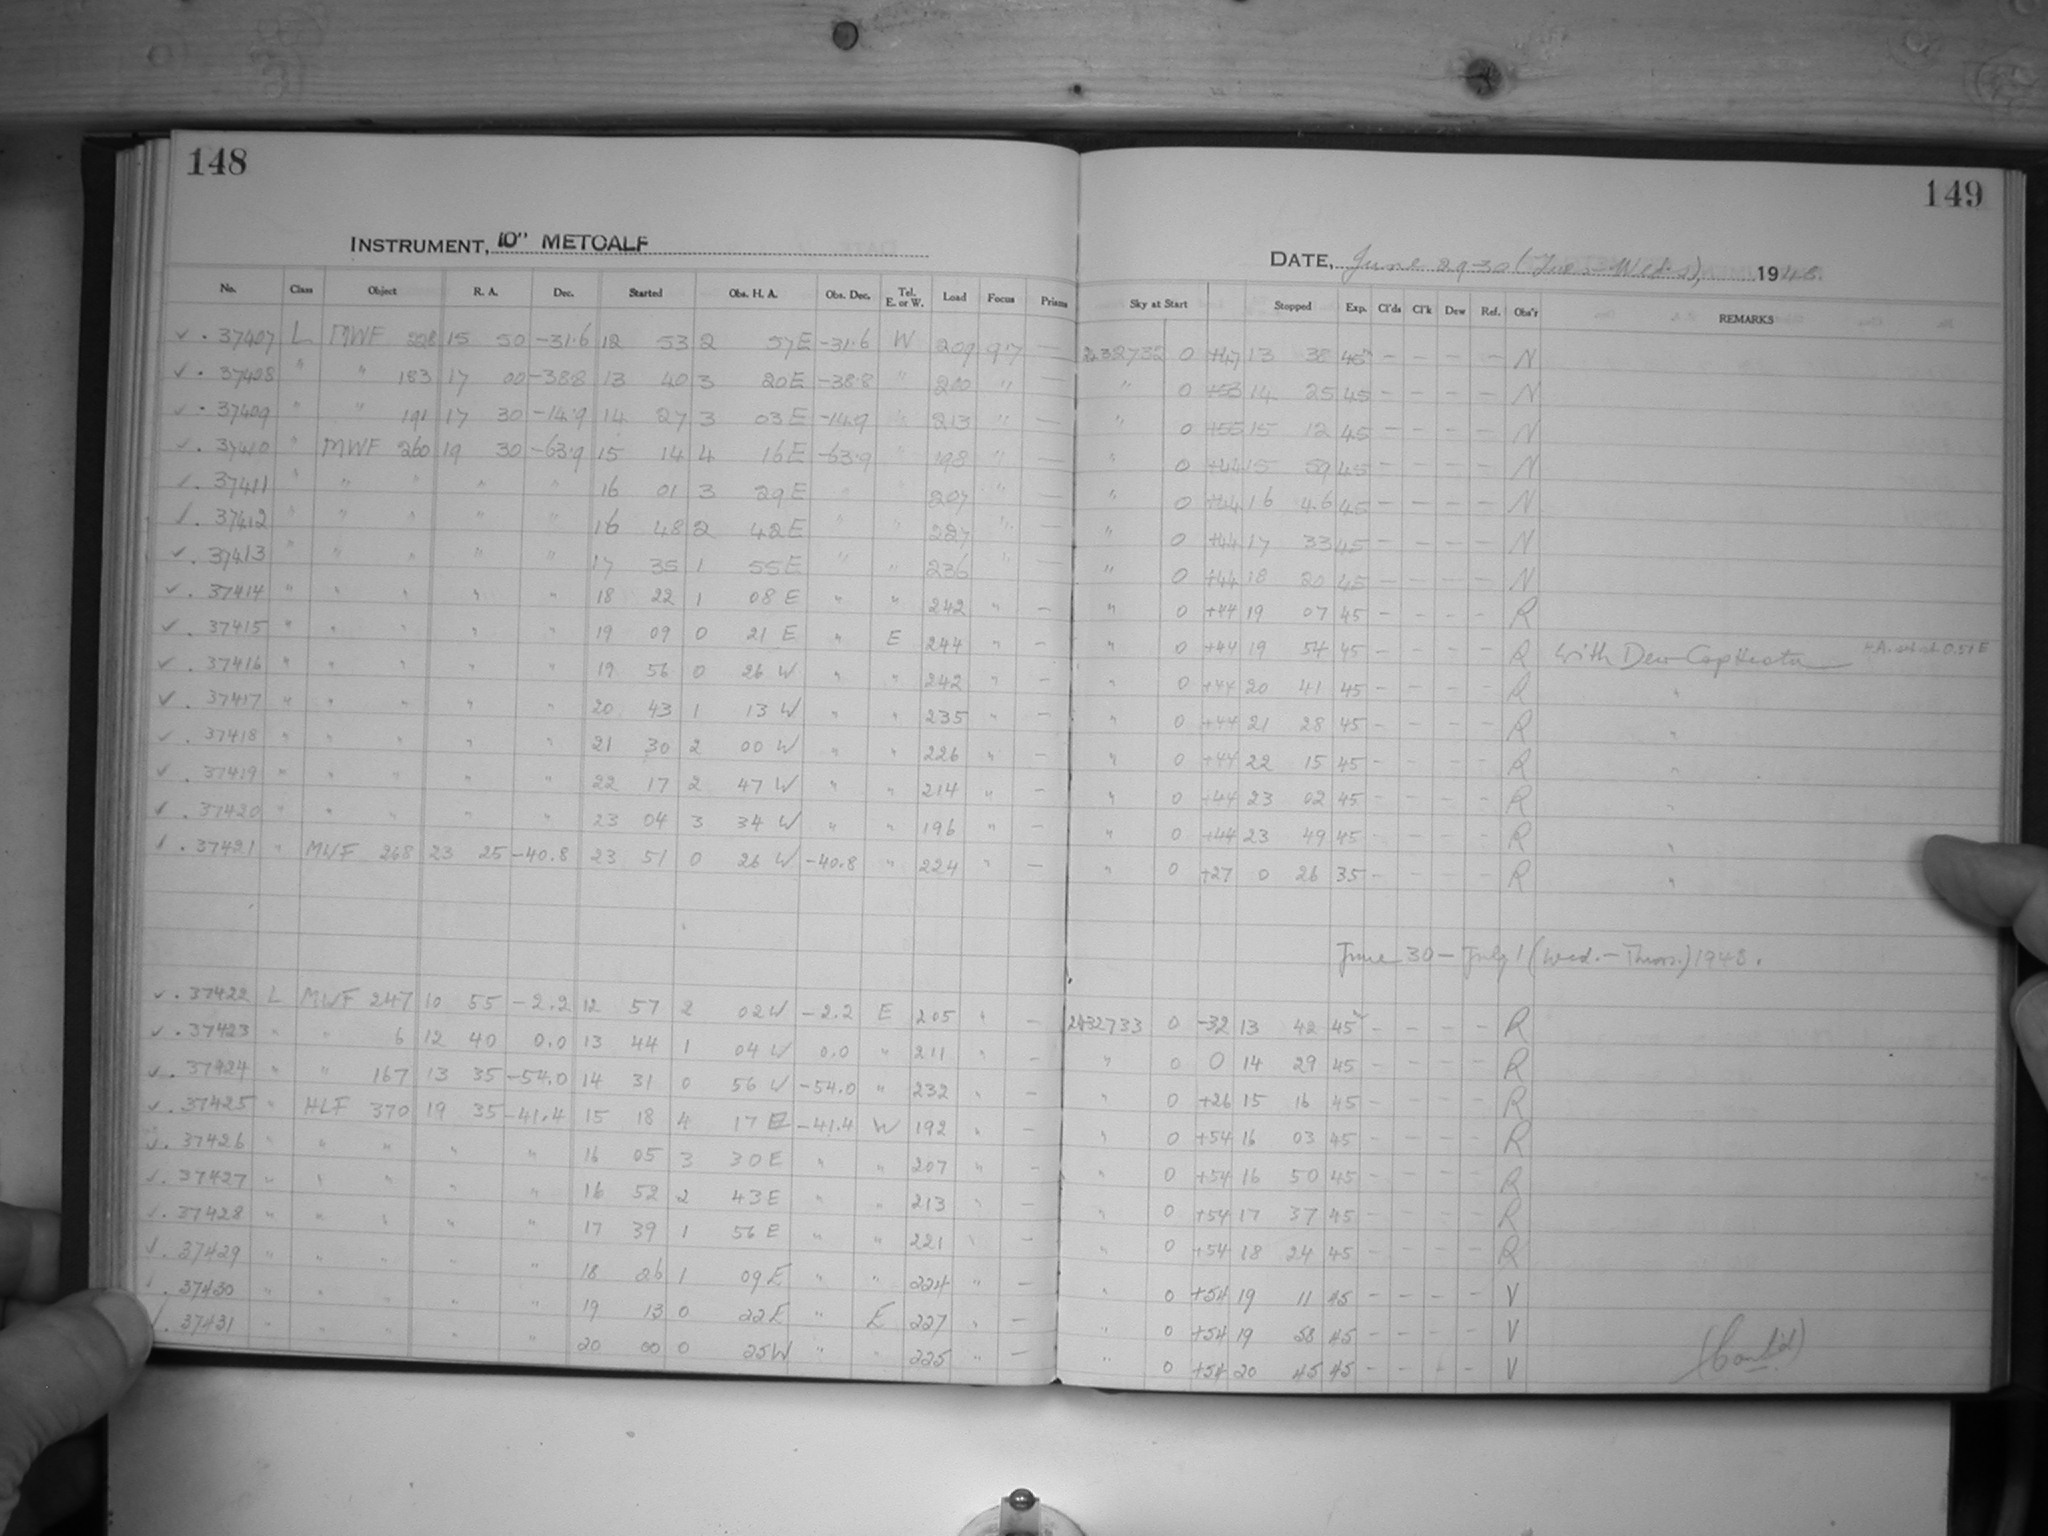 148
149
INSTRUMENT, 10" METCALF
DATE, June 29-30 (Tues - Weds), 1948.
No. Class Object R. A. Dec. Started Obs. H. A. Obs. Dec. Tel. E. or W. Load Focus Prisms Sky at Start Stopped Exp. Cl'ds Cl'k Dew Ref. Obs'r REMARKS
✓ . 37407 L MWF 328 15 50 -31.6 12 53 2 57E -31.6 W 209 9.7 — 2432732 0 +47 13 38 45 - - - - N
✓ . 37408 " " 183 17 00 -38.8 13 40 3 20E -38.8 " 200 " — " 0 +53 14 25 45 - - - - N
✓ . 37409 " " 191 17 30 -14.9 14 27 3 03E -14.9 " 213 " — " 0 +55 15 12 45 - - - - N
✓ . 37410 " MWF 260 19 30 -63.9 15 14 4 16E -63.9 " 198 " — " 0 +44 15 59 45 - - - - N
✓ . 37411 " " " " " 16 01 3 29E " " 207 " — " 0 +44 16 46 45 - - - - N
✓ . 37412 " " " " " 16 48 2 42E " " 227 " — " 0 +44 17 33 45 - - - - N
✓ . 37413 " " " " " 17 35 1 55E " " 236 " — " 0 +44 18 20 45 - - - - N
✓ . 37414 " " " " " 18 22 1 08E " " 242 " — " 0 +44 19 07 45 - - - - R
✓ . 37415 " " " " " 19 09 0 21 E " E 244 " — " 0 +44 19 54 45 - - - - R with Dew Cap Heater H.A. set at 0.51 E
✓ . 37416 " " " " " 19 56 0 26 W " " 242 " — " 0 +44 20 41 45 - - - - R "
✓ . 37417 " " " " " 20 43 1 13 W " " 235 " — " 0 +44 21 28 45 - - - - R "
✓ . 37418 " " " " " 21 30 2 00 W " " 226 " — " 0 +44 22 15 45 - - - - R "
✓ . 37419 " " " " " 22 17 2 47 W " " 214 " — " 0 +44 23 02 45 - - - - R "
✓ . 37420 " " " " " 23 04 3 34 W " " 196 " — " 0 +44 23 49 45 - - - - R "
✓ . 37421 " MWF 268 23 25 -40.8 23 51 0 26 W -40.8 " 224 " — " 0 +27 0 26 35 - - - - R "
June 30 - July 1 (Wed. - Thurs.) 1948.
✓ . 37422 L MWF 247 10 55 -2.2 12 57 2 02W -2.2 E 205 " — 2432733 0 -32 13 42 45 - - - - R
✓ . 37423 " " 6 12 40 0.0 13 44 1 04 W 0.0 " 211 " — " 0 0 14 29 45 - - - - R
✓ . 37424 " " 167 13 35 -54.0 14 31 0 56 W -54.0 " 232 " — " 0 +26 15 16 45 - - - - R
✓ . 37425 " HLF 370 19 35 -41.4 15 18 4 17 E -41.4 W 192 " — " 0 +54 16 03 45 - - - - R
✓ . 37426 " " " " " 16 05 3 30E " " 207 " — " 0 +54 16 50 45 - - - - R
✓ . 37427 " " " " " 16 52 2 43E " " 213 " — " 0 +54 17 37 45 - - - - R
✓ . 37428 " " " " " 17 39 1 56E " " 221 " — " 0 +54 18 24 45 - - - - R
✓ . 37429 " " " " " 18 26 1 09E " " 224 " — " 0 +54 19 11 45 - - - - V
✓ . 37430 " " " " " 19 13 0 22E " E 227 " — " 0 +54 19 58 45 - - - - V
✓ . 37431 " " " " " 20 00 0 25W " " 225 " — " 0 +54 20 45 45 - - - - V
(Cont'd)